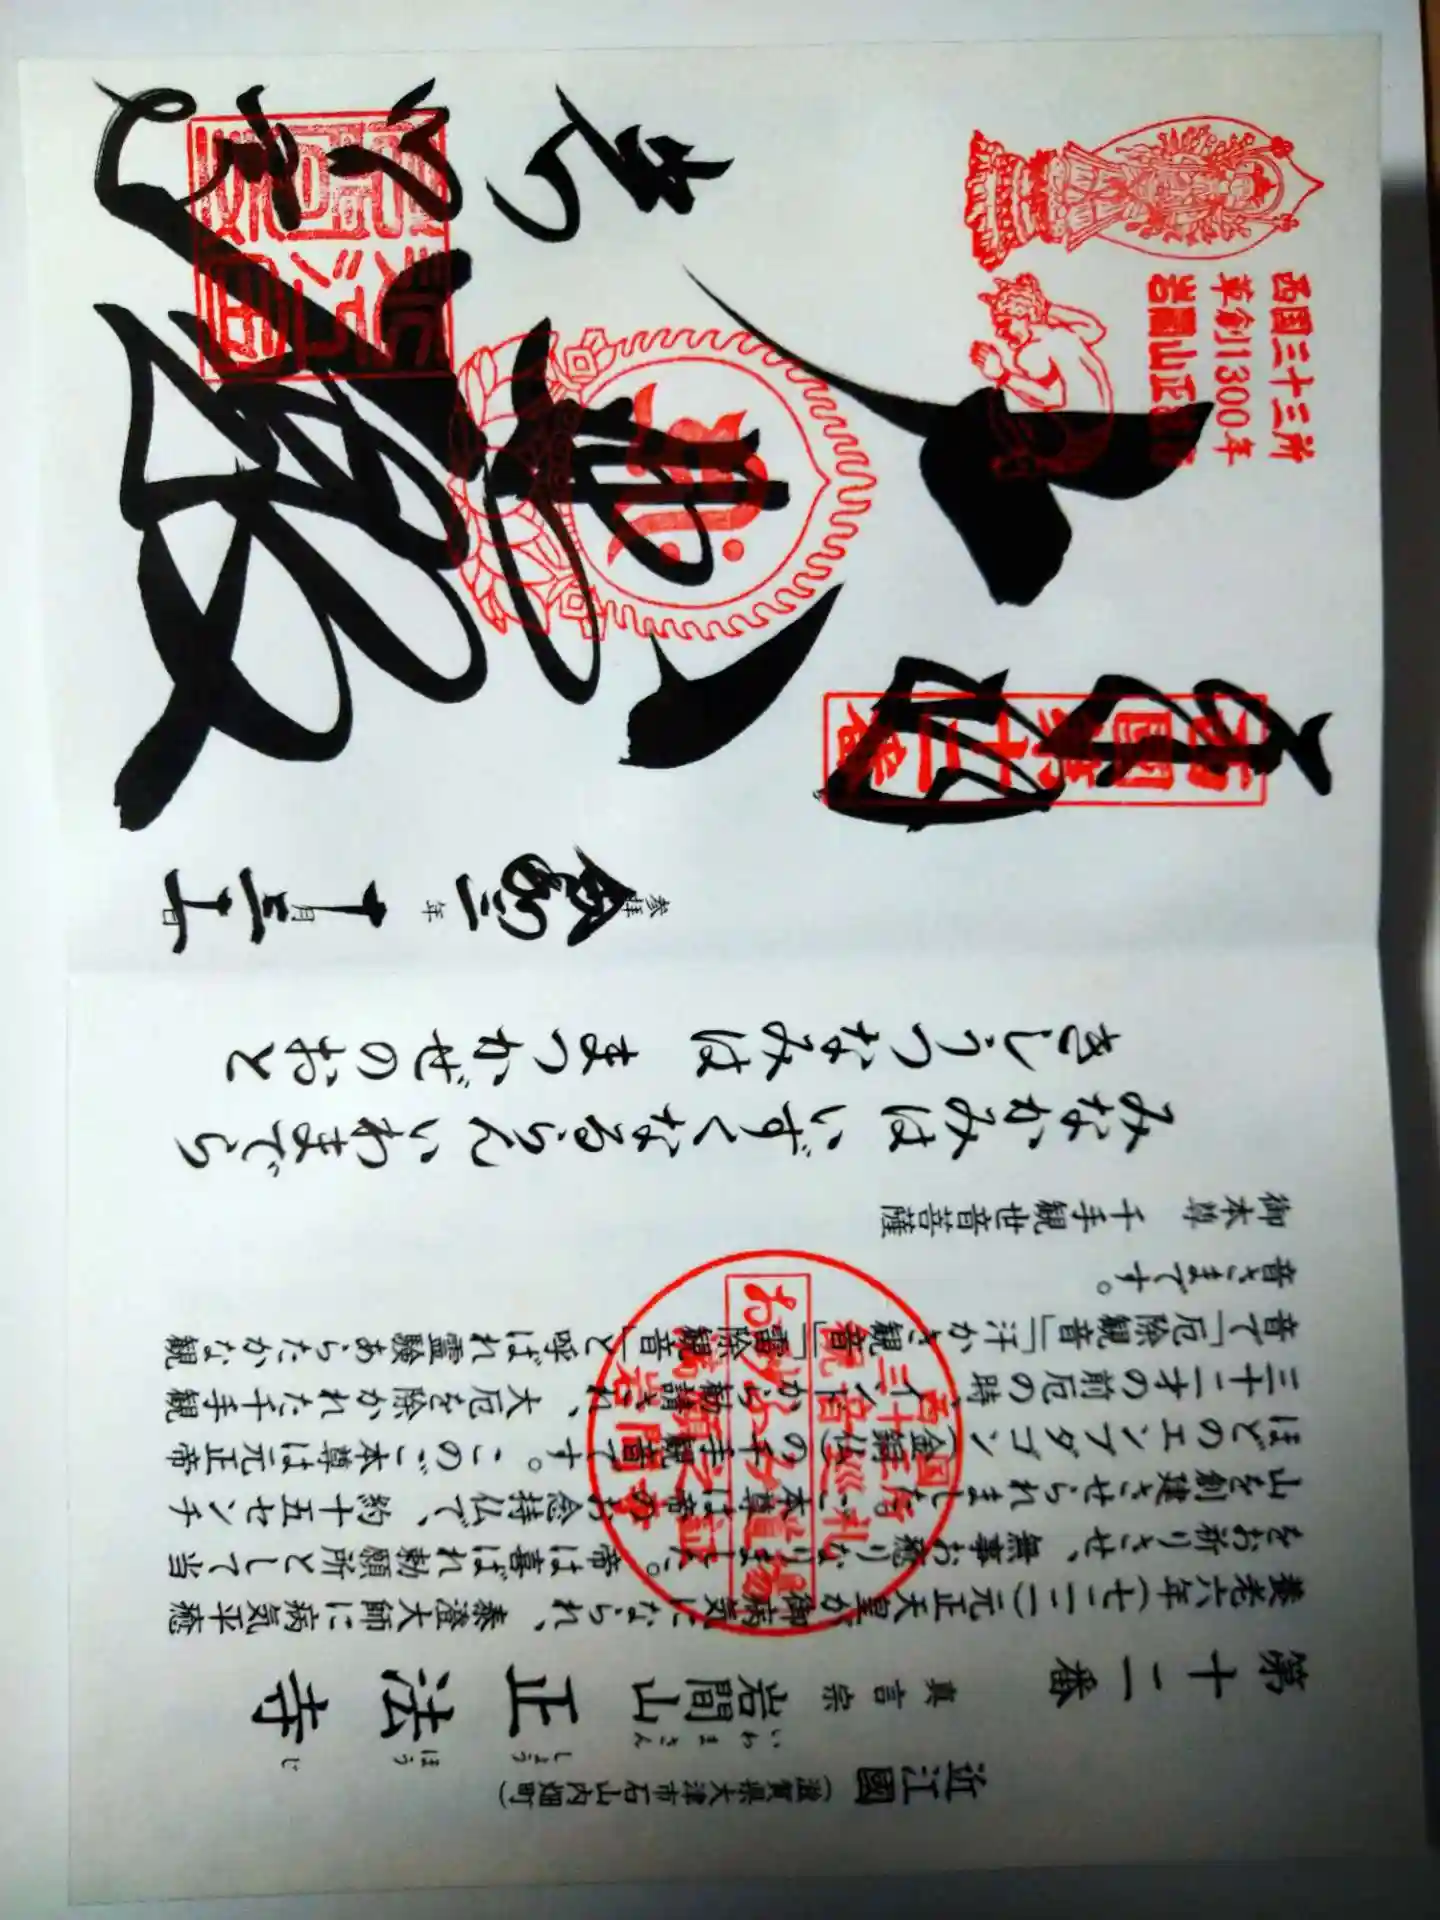 近江國
(滋賀県大津市石山内畑町)
第十二番 真言宗 岩間山 正法寺
いわまさん しょうほうじ
養老六年(七二二)元正天皇が御病気になられ、泰澄大師に病気平癒
をお祈りさせ、無事お癒りなりました。帝は喜ばれ勅願所として当
山を創建させられました。ご本尊は帝のお念持仏で、約十五センチ
ほどのエンブダゴン(金銅仏)の千手観音です。このご本尊は元正帝
三十二才の前厄の時、インドから勧請され、大厄を除かれた千手観
音で「厄除観音」「汗かき観音」「雷除観音」と呼ばれ霊験あらたかな観
音さまです。
御本尊 千手観世音菩薩
みなかみは いずくなるらん いわまでら
きしうつなみは まつかぜのおと
西国三十三所
観音巡礼
お砂ふみ道場
満願之証
岩間寺
奉拝
西國第十二番
大悲殿
岩間山
西国三十三所
草創1300年
岩間山正法寺
参拝 令和二年十月三十一日